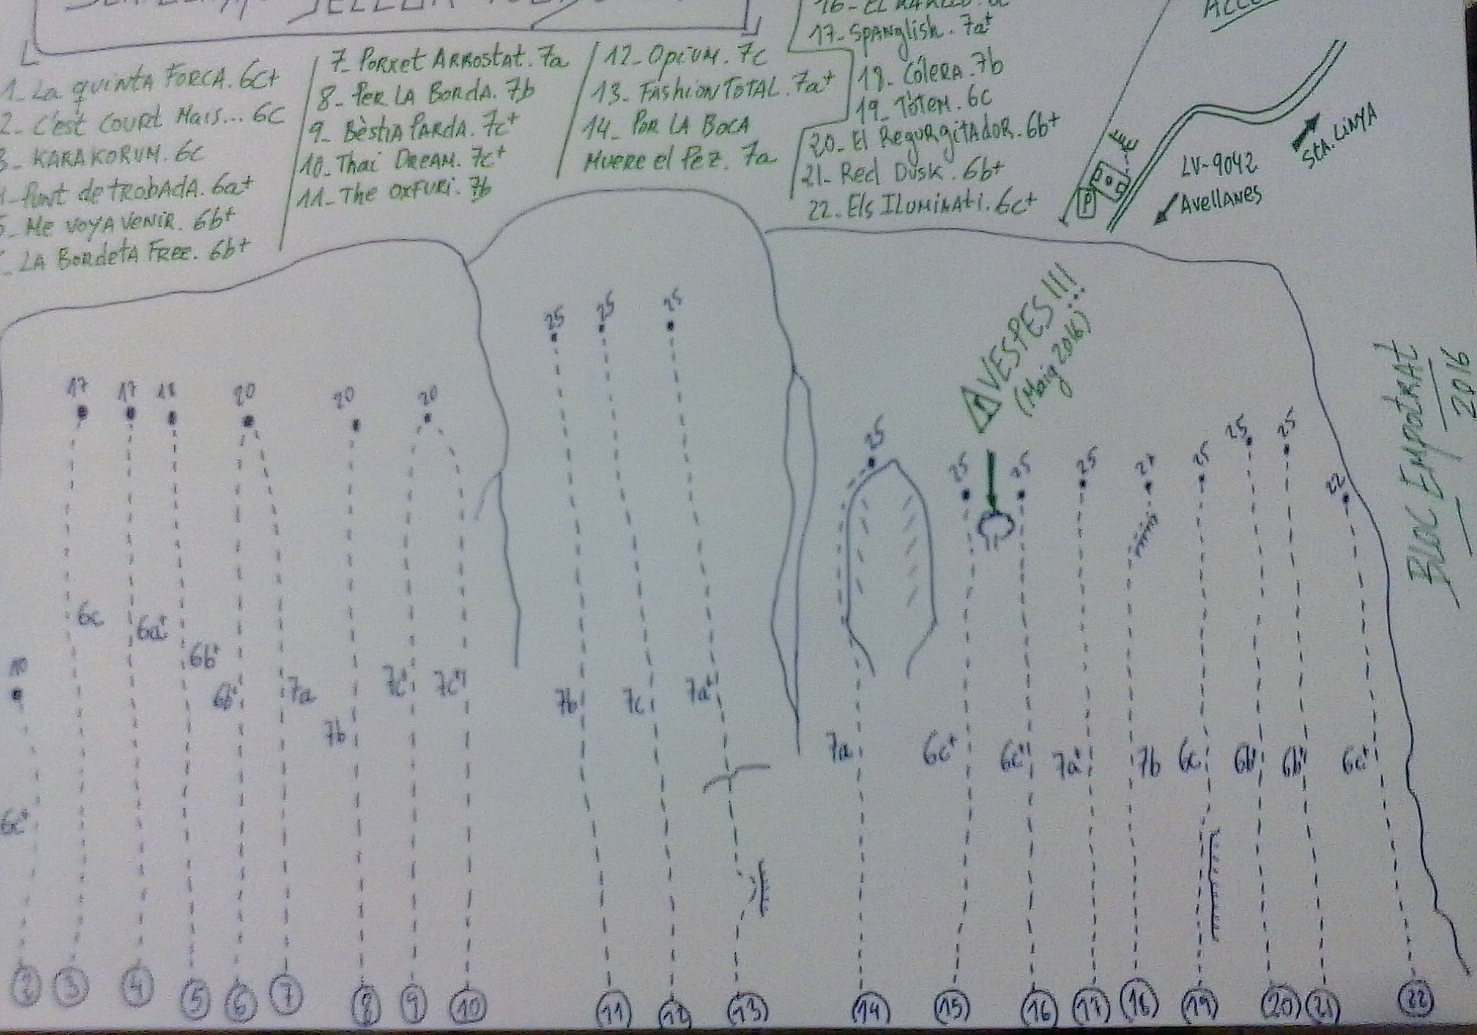 1- La quinta Forca. 6c+
2- C'est court Mais... 6c
3- KARAKORUM. 6c
Punt de trobada. 6a+
5- Me voy a venir. 6b+
LA Bordeta Free. 6b+
7- Porxet Arrostat. 7a
8- Per la Borda. 7b
9- Bèstia Parda. 7c+
10- Thai Dream. 7c+
11- The Oxfuri. 7b
12- Opium. 7c
13- Fashion TOTAL. 7a+
14- Por la Boca
Muere el Pez. 7a
17- Spanglish. 7a+
18- Còlera. 7b
19- Tòtem. 6c
20- El Regurgitador. 6b+
21- Red Dusk. 6b+
22- Els Iluminati. 6c+
LV-9042
Avellanes
Sta. Linya
P
VESPES!!!
(Maig 2016)
Bloc Empotrat
2016
17 17 18 20 20 20 25 25 25 25 25 25 25 21 25 25 25 22
10
6c 6a+ 6b+ 6b+ 7a 7b 7c+ 7c+ 7b 7c 7a+
6c+ 7a 6c+ 6c+ 7a+ 7b 6c 6b+ 6b+ 6c+
2 3 4 5 6 7 8 9 10 11 12 13 14 15 16 17 18 19 20 21 22